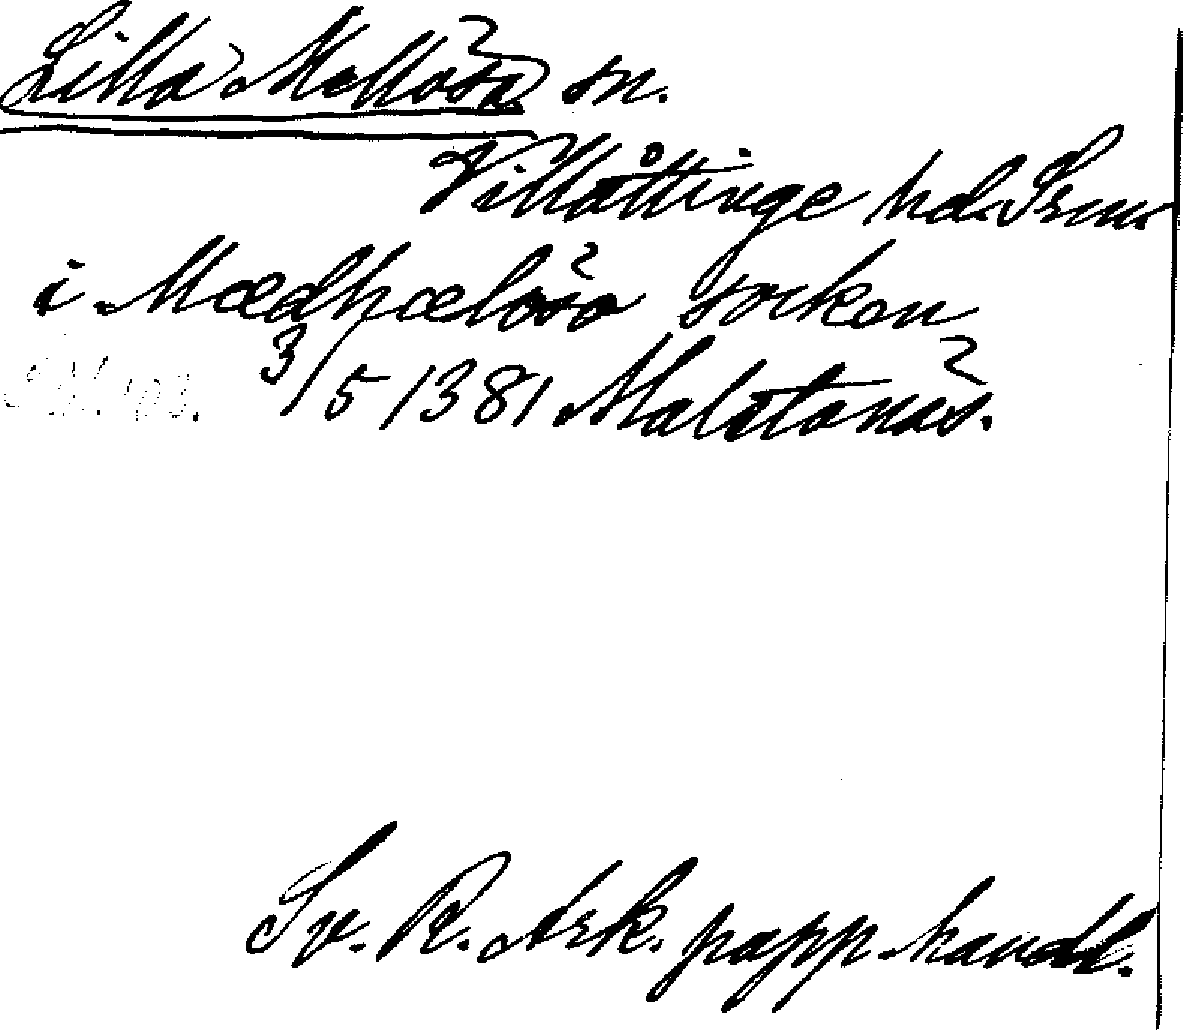 Lilla Mellösa sn.
Villåttinge hd. Srm.
i Mædhælösa socken
3/5 1381 Malstanäs.
Sv. R. Ark. papp. handl.